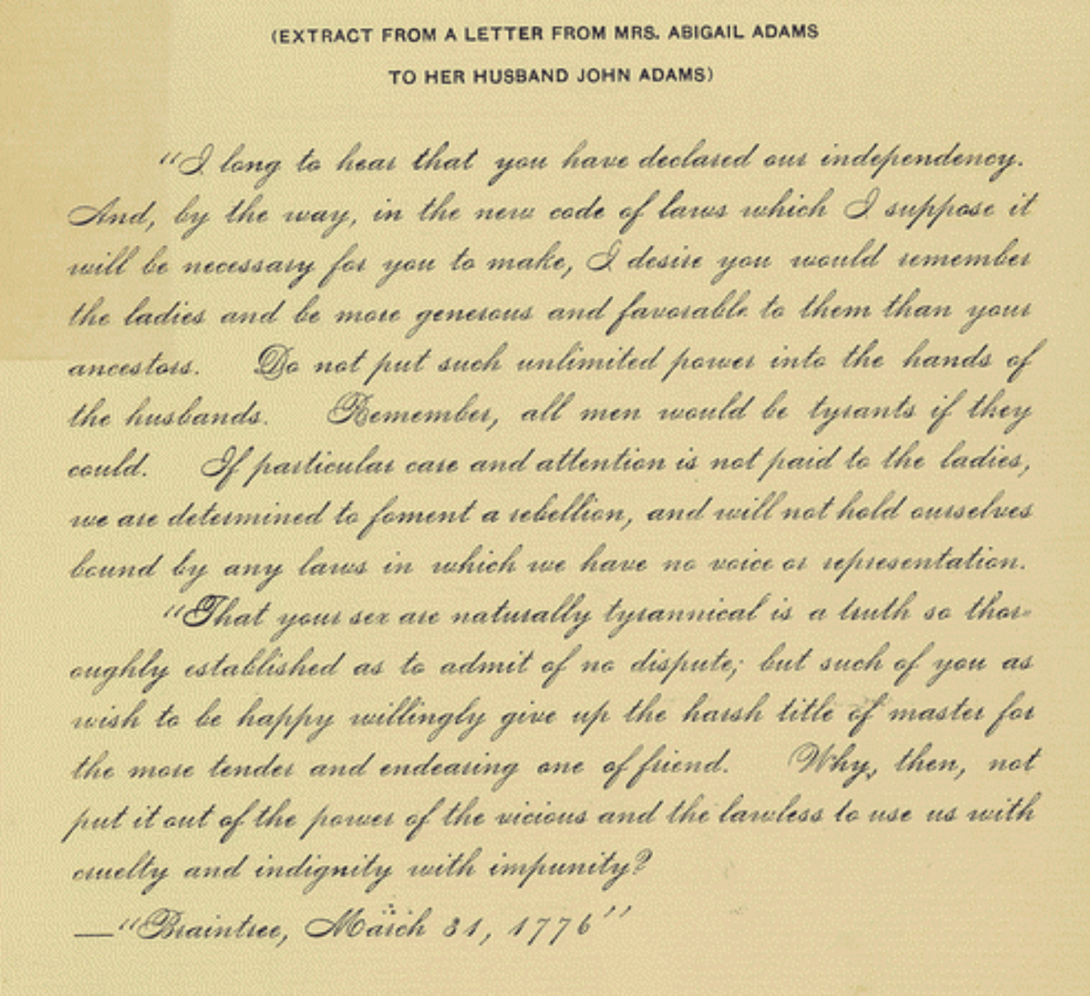 (EXTRACT FROM A LETTER FROM MRS. ABIGAIL ADAMS
TO HER HUSBAND JOHN ADAMS)
"I long to hear that you have declared our independency.
And, by the way, in the new code of laws which I suppose it
will be necessary for you to make, I desire you would remember
the ladies and be more generous and favorable to them than your
ancestors. Do not put such unlimited power into the hands of
the husbands. Remember, all men would be tyrants if they
could. If particular care and attention is not paid to the ladies,
we are determined to foment a rebellion, and will not hold ourselves
bound by any laws in which we have no voice or representation.
"That your sex are naturally tyrannical is a truth so thor-
oughly established as to admit of no dispute; but such of you as
wish to be happy willingly give up the harsh title of master for
the more tender and endearing one of friend. Why, then, not
put it out of the power of the vicious and the lawless to use us with
cruelty and indignity with impunity?
—"Braintree, March 31, 1776"